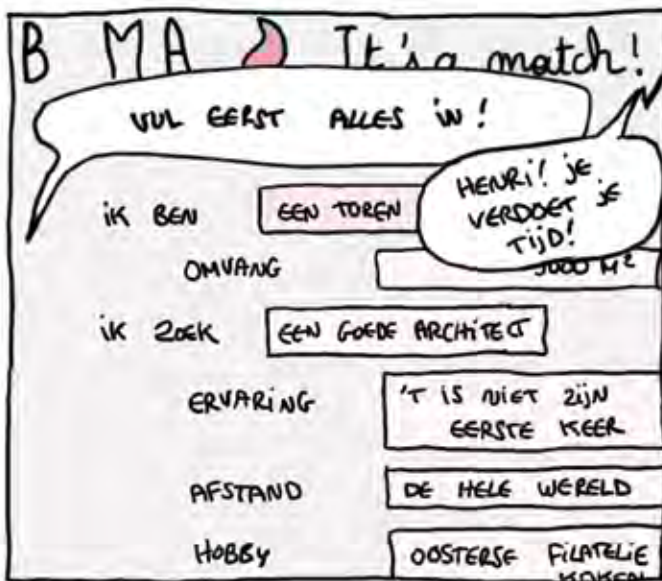 B MA It's a match!
VUL EERST ALLES IN!
HENRI! JE
VERDOET JE
TIJD!
IK BEN EEN TOREN
OMVANG
IK ZOEK EEN GOEDE ARCHITECT
ERVARING 'T IS NIET ZIJN
EERSTE KEER
AFSTAND DE HELE WERELD
HOBBY OOSTERSE FILATELIE